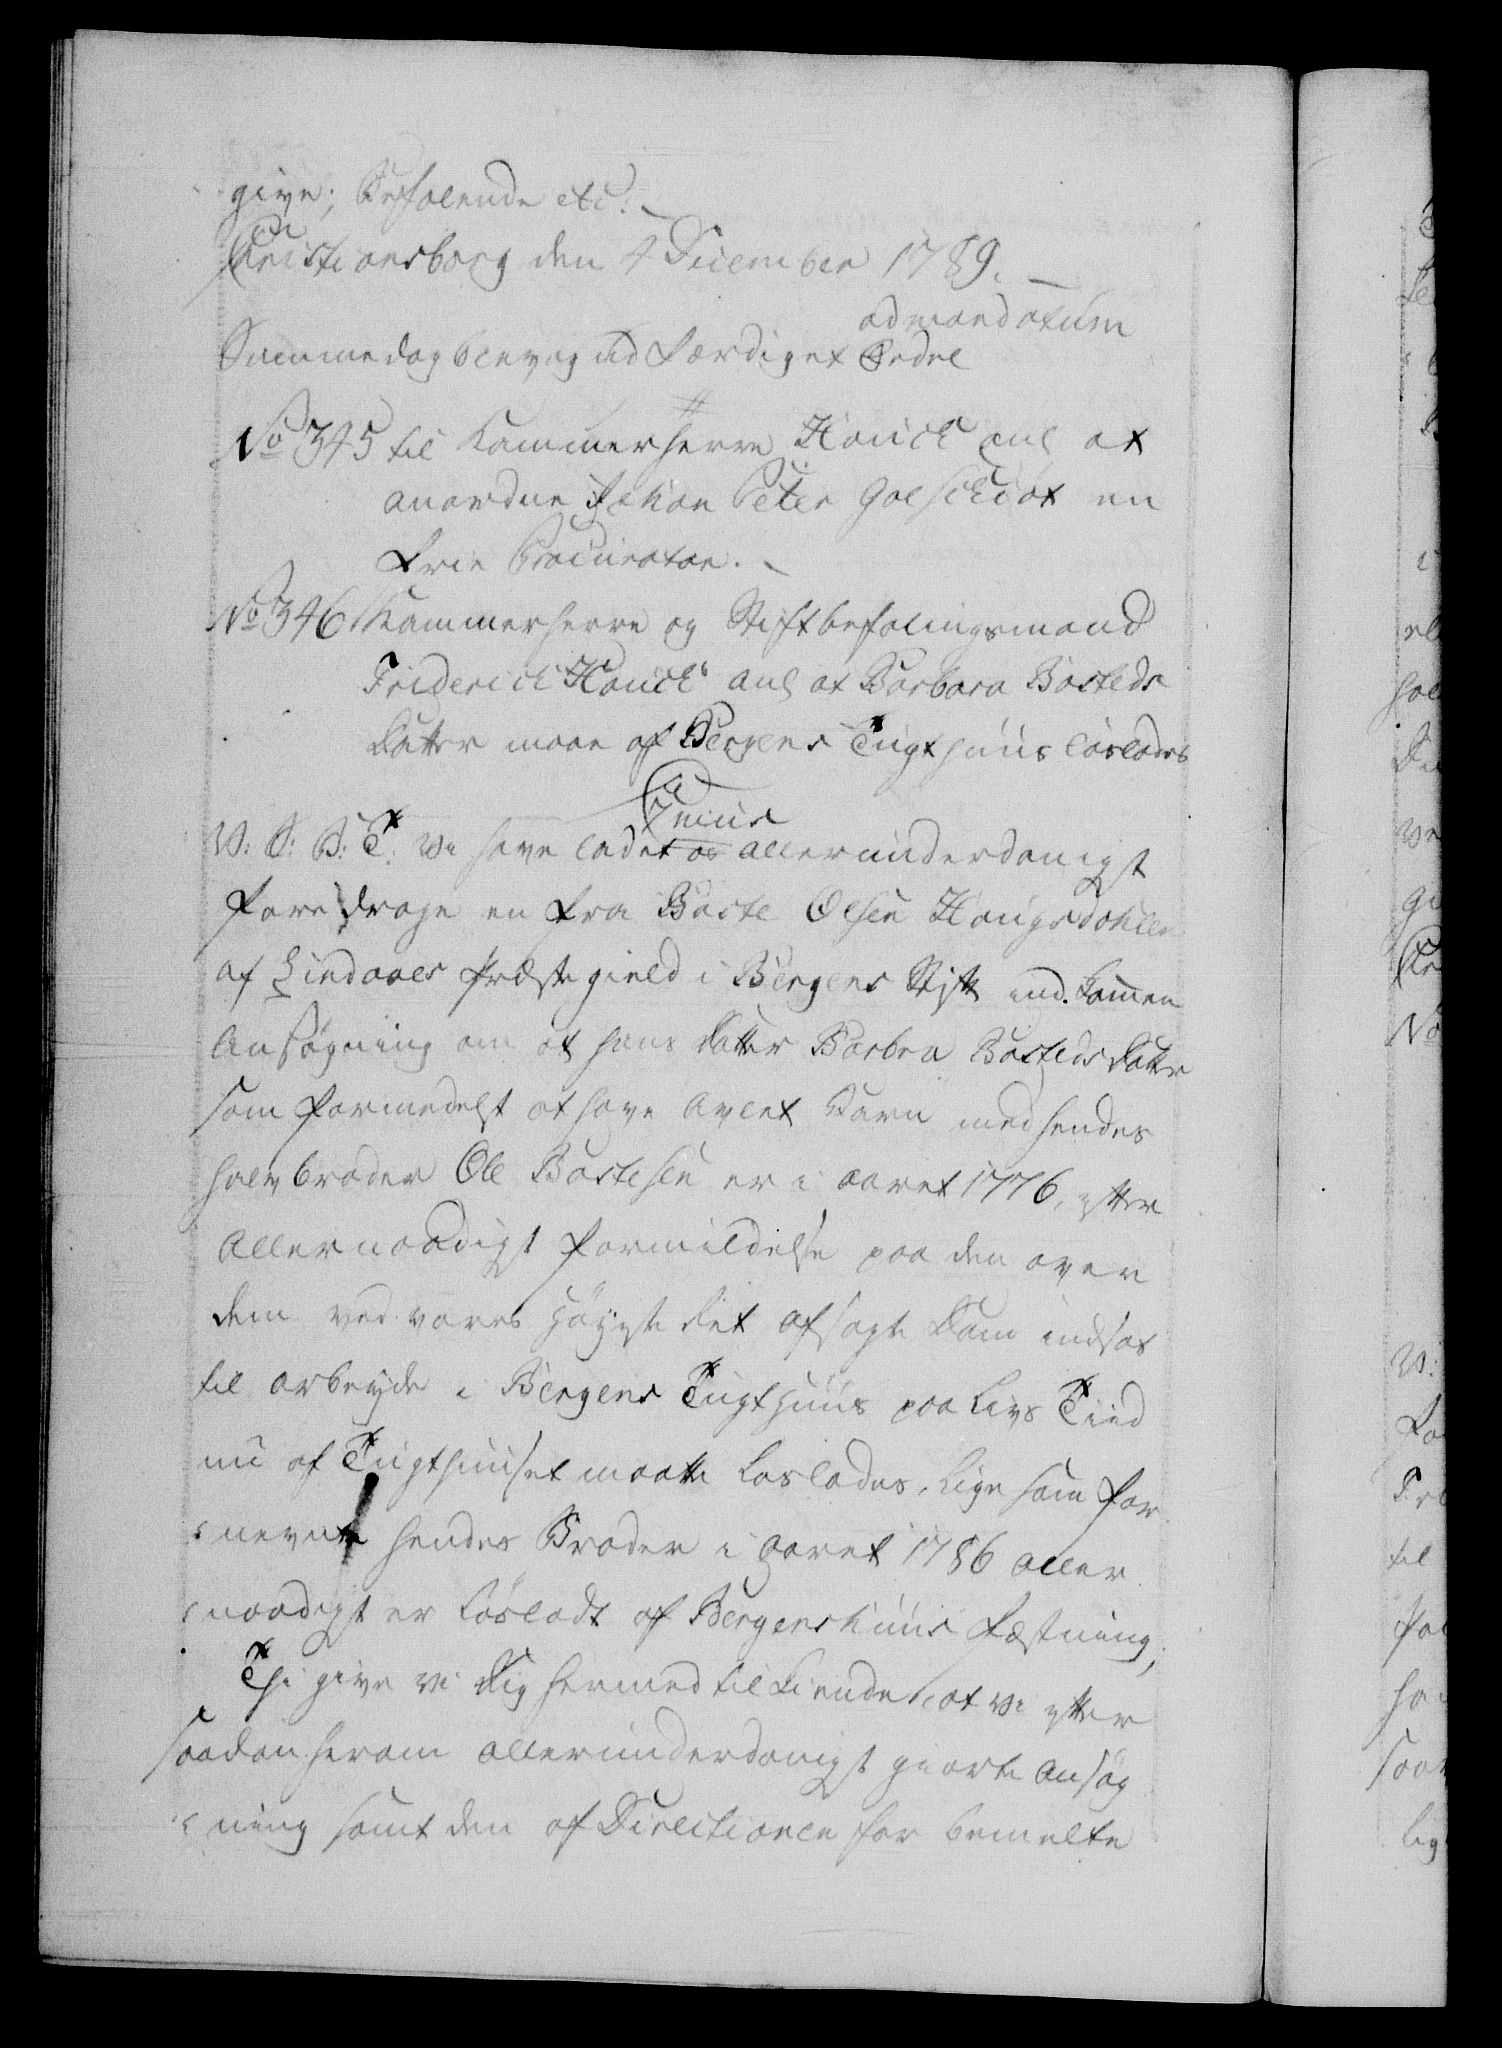 give; Befalende etc:
Christiansborg den 4 December 1789.
ad mandatum
Samme dag blev og udfærdiget Ordre
No 345 til Kammerherre Hauch anl at
anordne Johan Peter en
frie Procurator.
No 346 Kammerherre og Stiftbefalingsmand
Friderich Hauch anl at Barbara Bosteds
Datter maae af Bergens Tugthuus løslades
V: S: B: T: Vi have ladet os allerunderdanigst
foredrage en fra Baste Olsen Haugsdahlen
af Lindaaes Præstegield i Bergens Stift indkommen
Ansøgning om at hans Datter Barbra Bostedsdatter
som formedelst at have Avlet Barn med hendes
halvbroder Ole Bastesen er i aaret 1776, efter
Allernaadigst formildelse paa den over
dem ved vores Høyeste Ret afsagte Dom indsat
til arbeyde i Bergens Tugthuus paa Livs Tiid
nu af Tugthuuset maatte Loslades, lige som for
nevnte hendes Broder i Aaret 1786 aller
naadigst er Løsladt af Bergenhuus Fæstning;
Thi give vi Dig hermed tilkiende, at vi efter
saadan herom allerunderdanigst giorte Ansøg
ning samt den af Directionen for bemelte